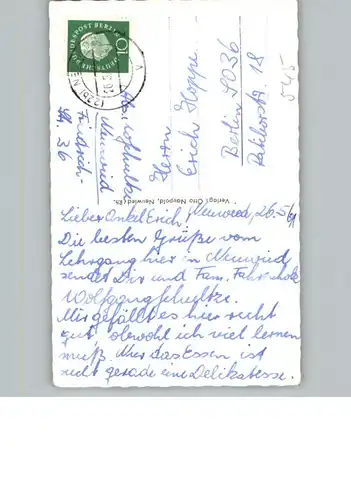 DEUTSCHE BUNDESPOST BERLIN
10
545
Herrn
Erich Hoppe
Berlin SO36
Ratiborstr. 18
Abs. Schultze
Neuwied
Friedrich-
str. 36
Verlag: Otto Neupold, Neuwied/Rh.
Lieber Onkel Erich, Neuwied, 26.5.61
Die besten Grüße vom
Lehrgang hier in Neuwied
sendet Dir und Fam.
Wolfgang Schultze.
Mir gefällt es hier recht
gut, obwohl ich viel lernen
muß. Nur das Essen ist
nicht gerade eine Delikatesse.